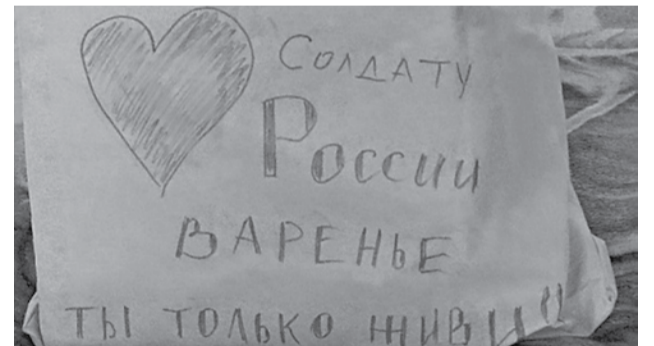 Солдату
России
ВАРЕНЬЕ
ТЫ ТОЛЬКО ЖИВИ!!